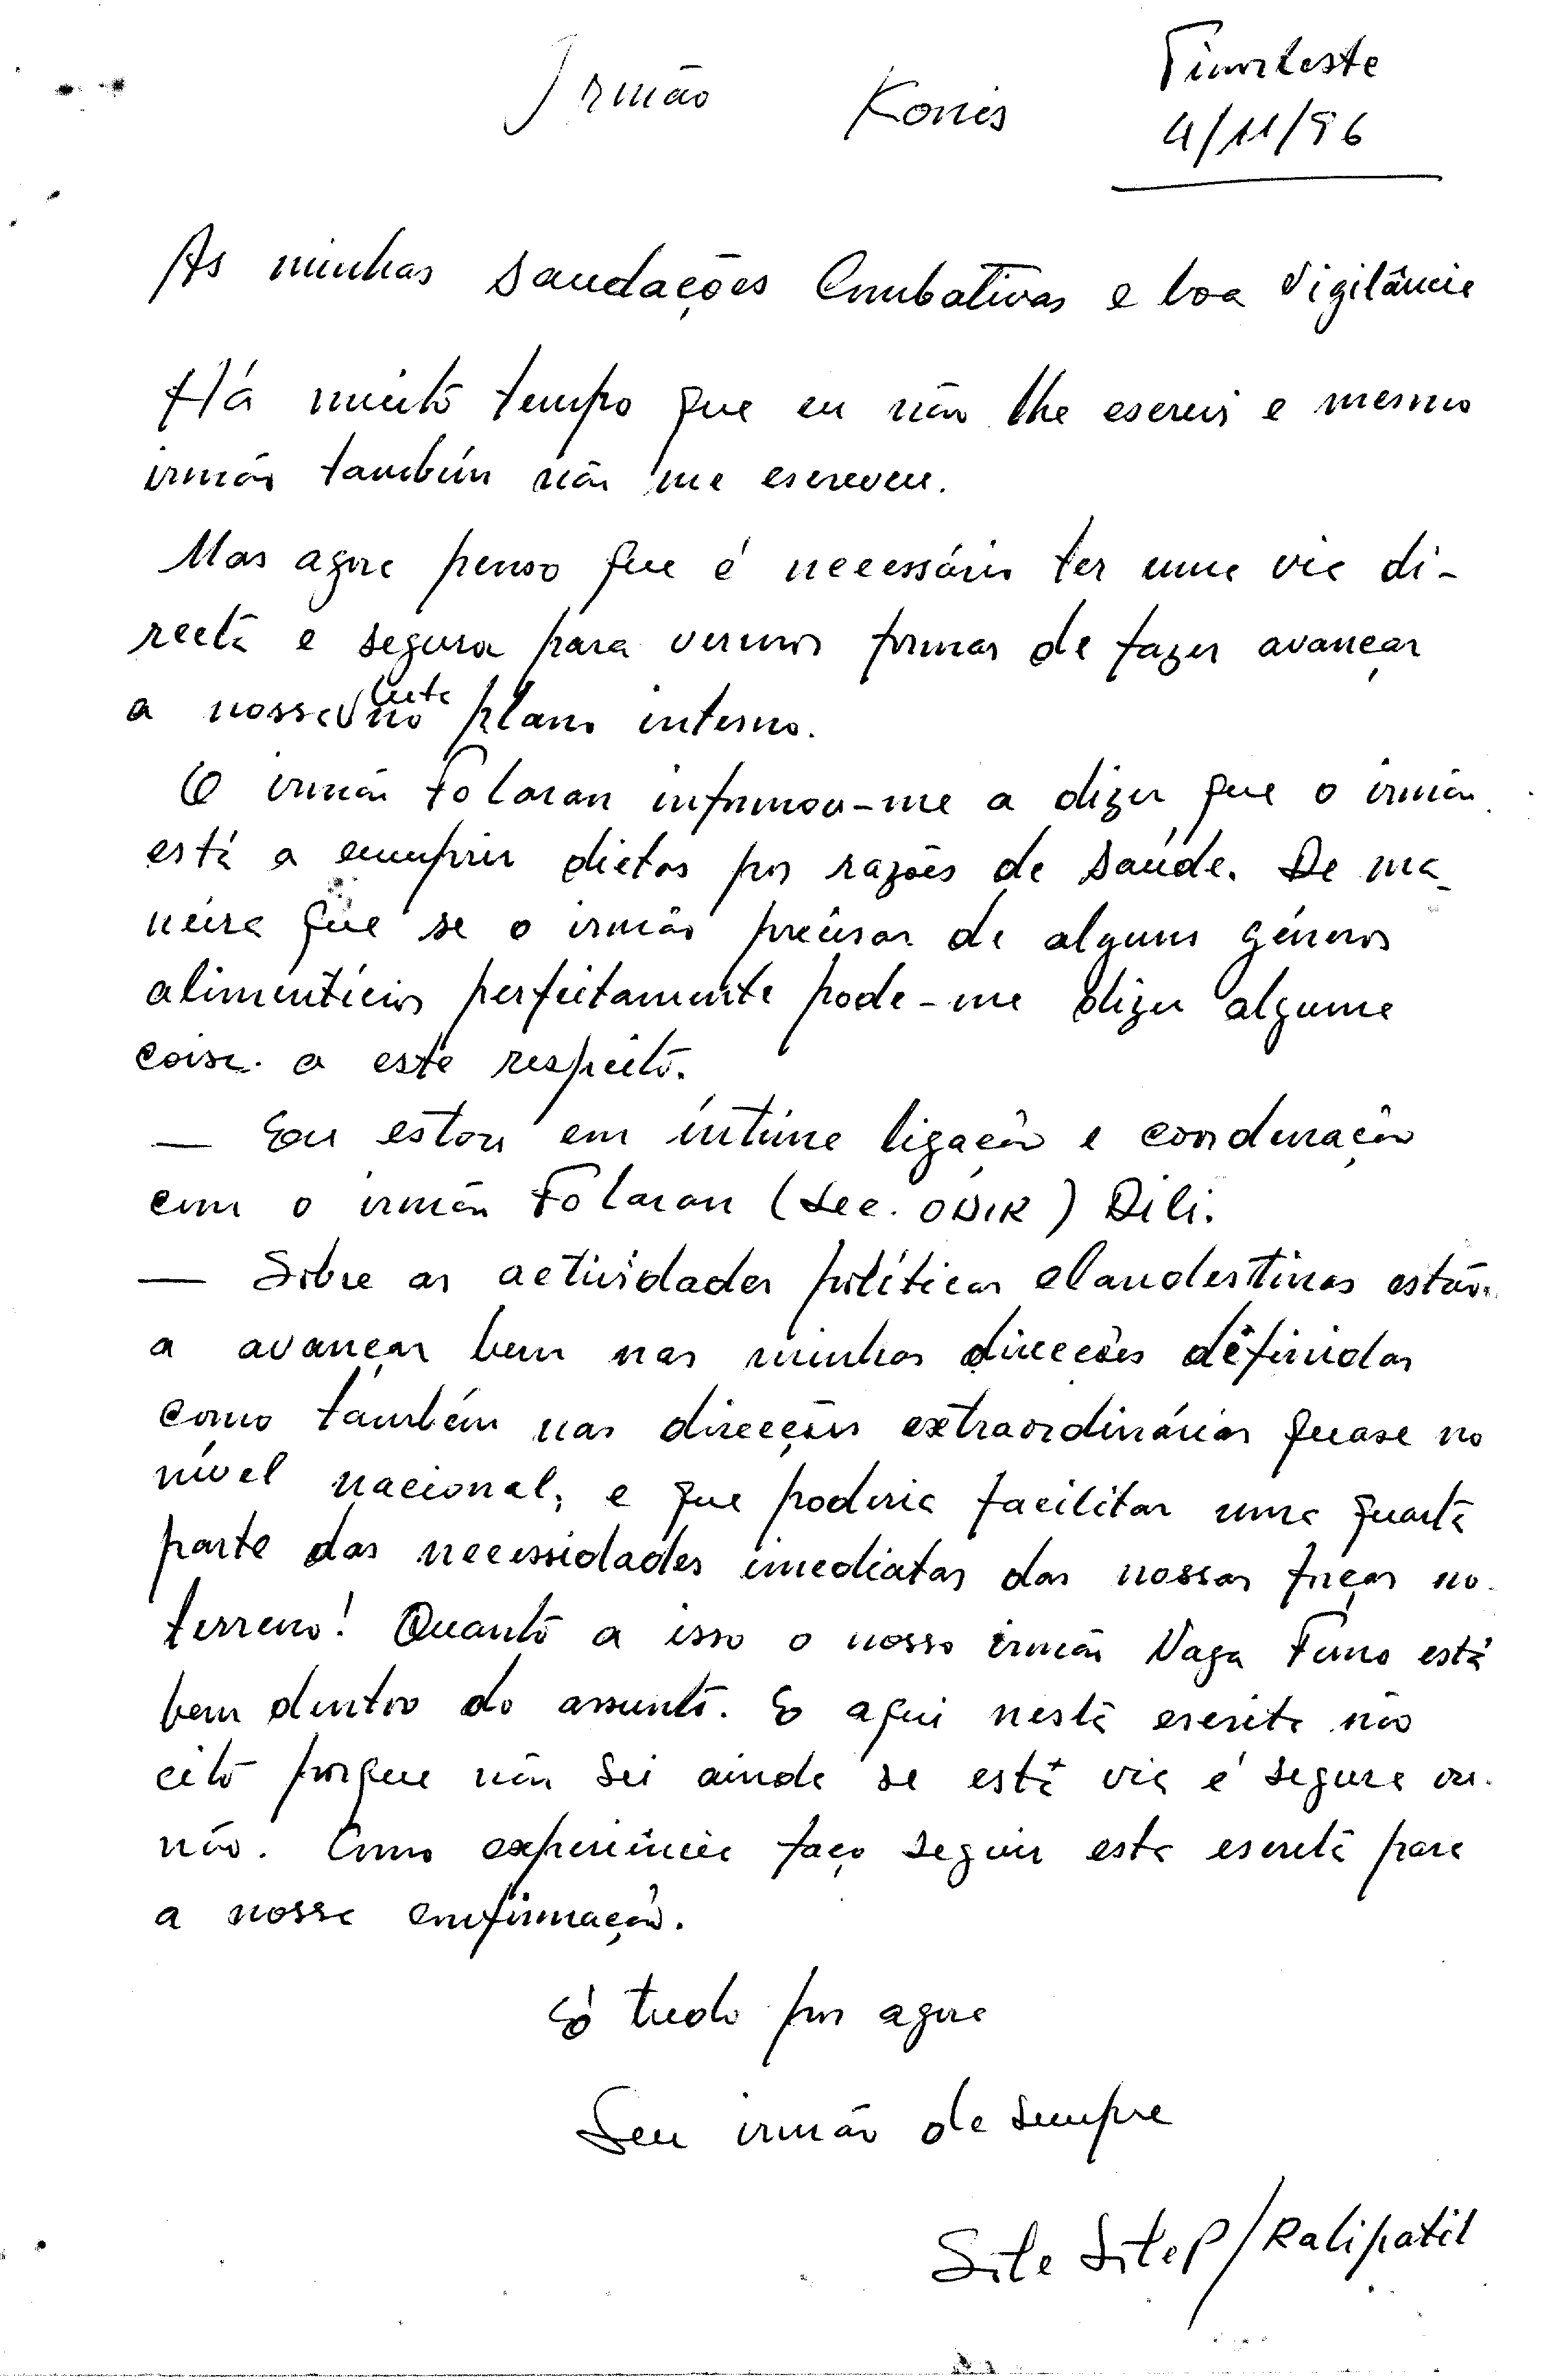 Irmão Konis
Timorleste
4/11/96
As minhas saudações Combativas e boa vigilância
Há muito tempo que eu não lhe escrevi e mesmo
irmão também não me escreveu.
Mas agora penso que é necessário ter uma via di-
recta e segura para vermos formas de fazer avançar
a nossa luta no plano interno.
O irmão Folaran informou-me a dizer que o irmão
está a cumprir dietas por razões de saúde. De ma-
neira que se o irmão precisar de alguns géneros
alimentícios perfeitamente pode-me dizer alguma
coisa a este respeito.
— Eu estou em íntima ligação e coordenação
com o irmão Folaran (Sec. OJNIR) Dili.
— Sobre as actividades políticas clandestinas estão
a avançar bem nas minhas direcções definidas
como também nas direcções extraordinárias quase no
nível nacional, e que poderia facilitar uma quarta
parte das necessidades imediatas das nossas forças no
terreno! Quanto a isso o nosso irmão Naga Fumo está
bem dentro do assunto. E aqui nesta escrita não
cito porque não sei ainda se esta via é segura ou
não. Como experiência faço seguir esta escrita para
a nossa confirmação.
É tudo por agora
Seu irmão de sempre
Site SiteP/Ralipatil